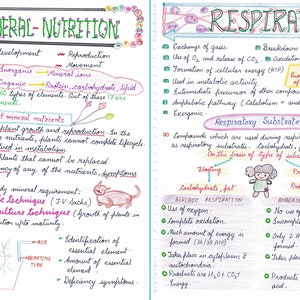 NERAL-NUTRITION
development ~ Reproduction
~ Movement
Inorganic → Mineral ions
Organic → Protein, carbohydrate, lipid
types of elements. Out of
f mineral nutrients
plant growth and reproduction. In the
nutrients, plants cannot complete lifecycle
involved in metabolism.
plants that cannot be replaced
of any of the nutrients, symptoms
by mineral requirement:
technique (J.V. Sachs)
culture techniques (growth of plants in
upto maturity.
AIR
AERATING
TUBE
- Identification of
essential element
- Amount of essential
element
- Deficiency symptoms
RESPIRA
Exchange of gases.
Breakdown
Use of O2 and release of CO2
Oxidation
Formation of cellular energy (ATP)
Used in metabolic activity
Intermediate precursor of other compo
Amphibolic pathway (Catabolism +
Exergonic
Respiratory Substrate
Compounds which are used during resp
as respiratory substrate. Carbohydrat
On the basis of type of subst
Floating
Carbohydrate, fat
AEROBIC RESPIRATION
Use of oxygen
Complete oxidation
Much amount of energy is
formed (36/38 ATP)
Take place in cytoplasm &
mitochondria.
Products are H2O + CO2 +
Energy
No use
Incomplete
Only 2 A
formed
Takes
Product